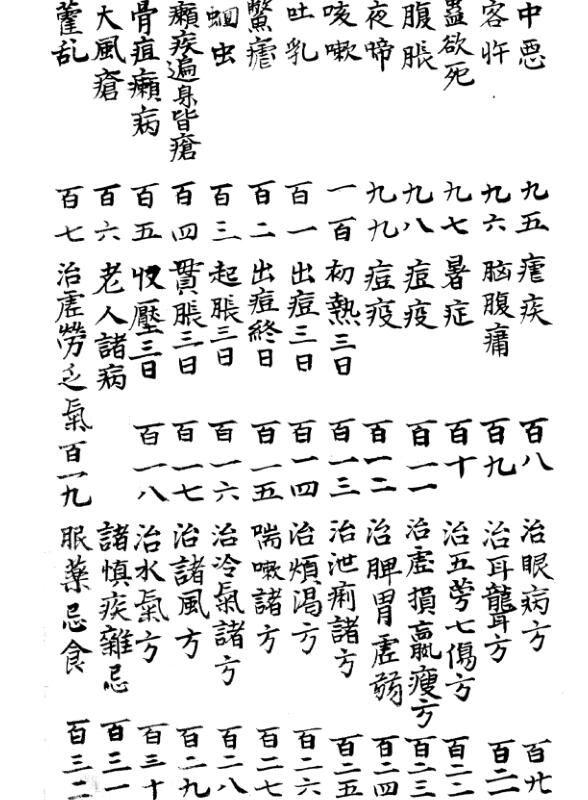 中悪 九五
客忤 九六
蠱欲死 九七
腹脹 九八
夜啼 九九
咳嗽 一百
吐乳 百一
驚瘧 百二
蛔虫 百三
癩疾遍身皆瘡 百四
骨疽癩病 百五
大風瘡 百六
藿乱 百七
瘧疾 百八
脳腹痛 百九
暑症 百十
痘疫 百一一
痘疫 百一二
初熱三日 百一三
出痘三日 百一四
出痘終日 百一五
起脹三日 百一六
貫脹三日 百一七
收壓三日 百一八
老人諸病
治虚勞乏氣 百一九
治眼病方 百廿
治耳聾方 百二一
治五勞七傷方 百二二
治虚損羸瘦方 百二三
治脾胃虚弱 百二四
治泄痢諸方 百二五
治煩渴方 百二六
喘嗽諸方 百二七
治冷氣諸方 百二八
治諸風方 百二九
治水氣方 百三十
諸慎疾雜忌 百三一
服薬忌食 百三二